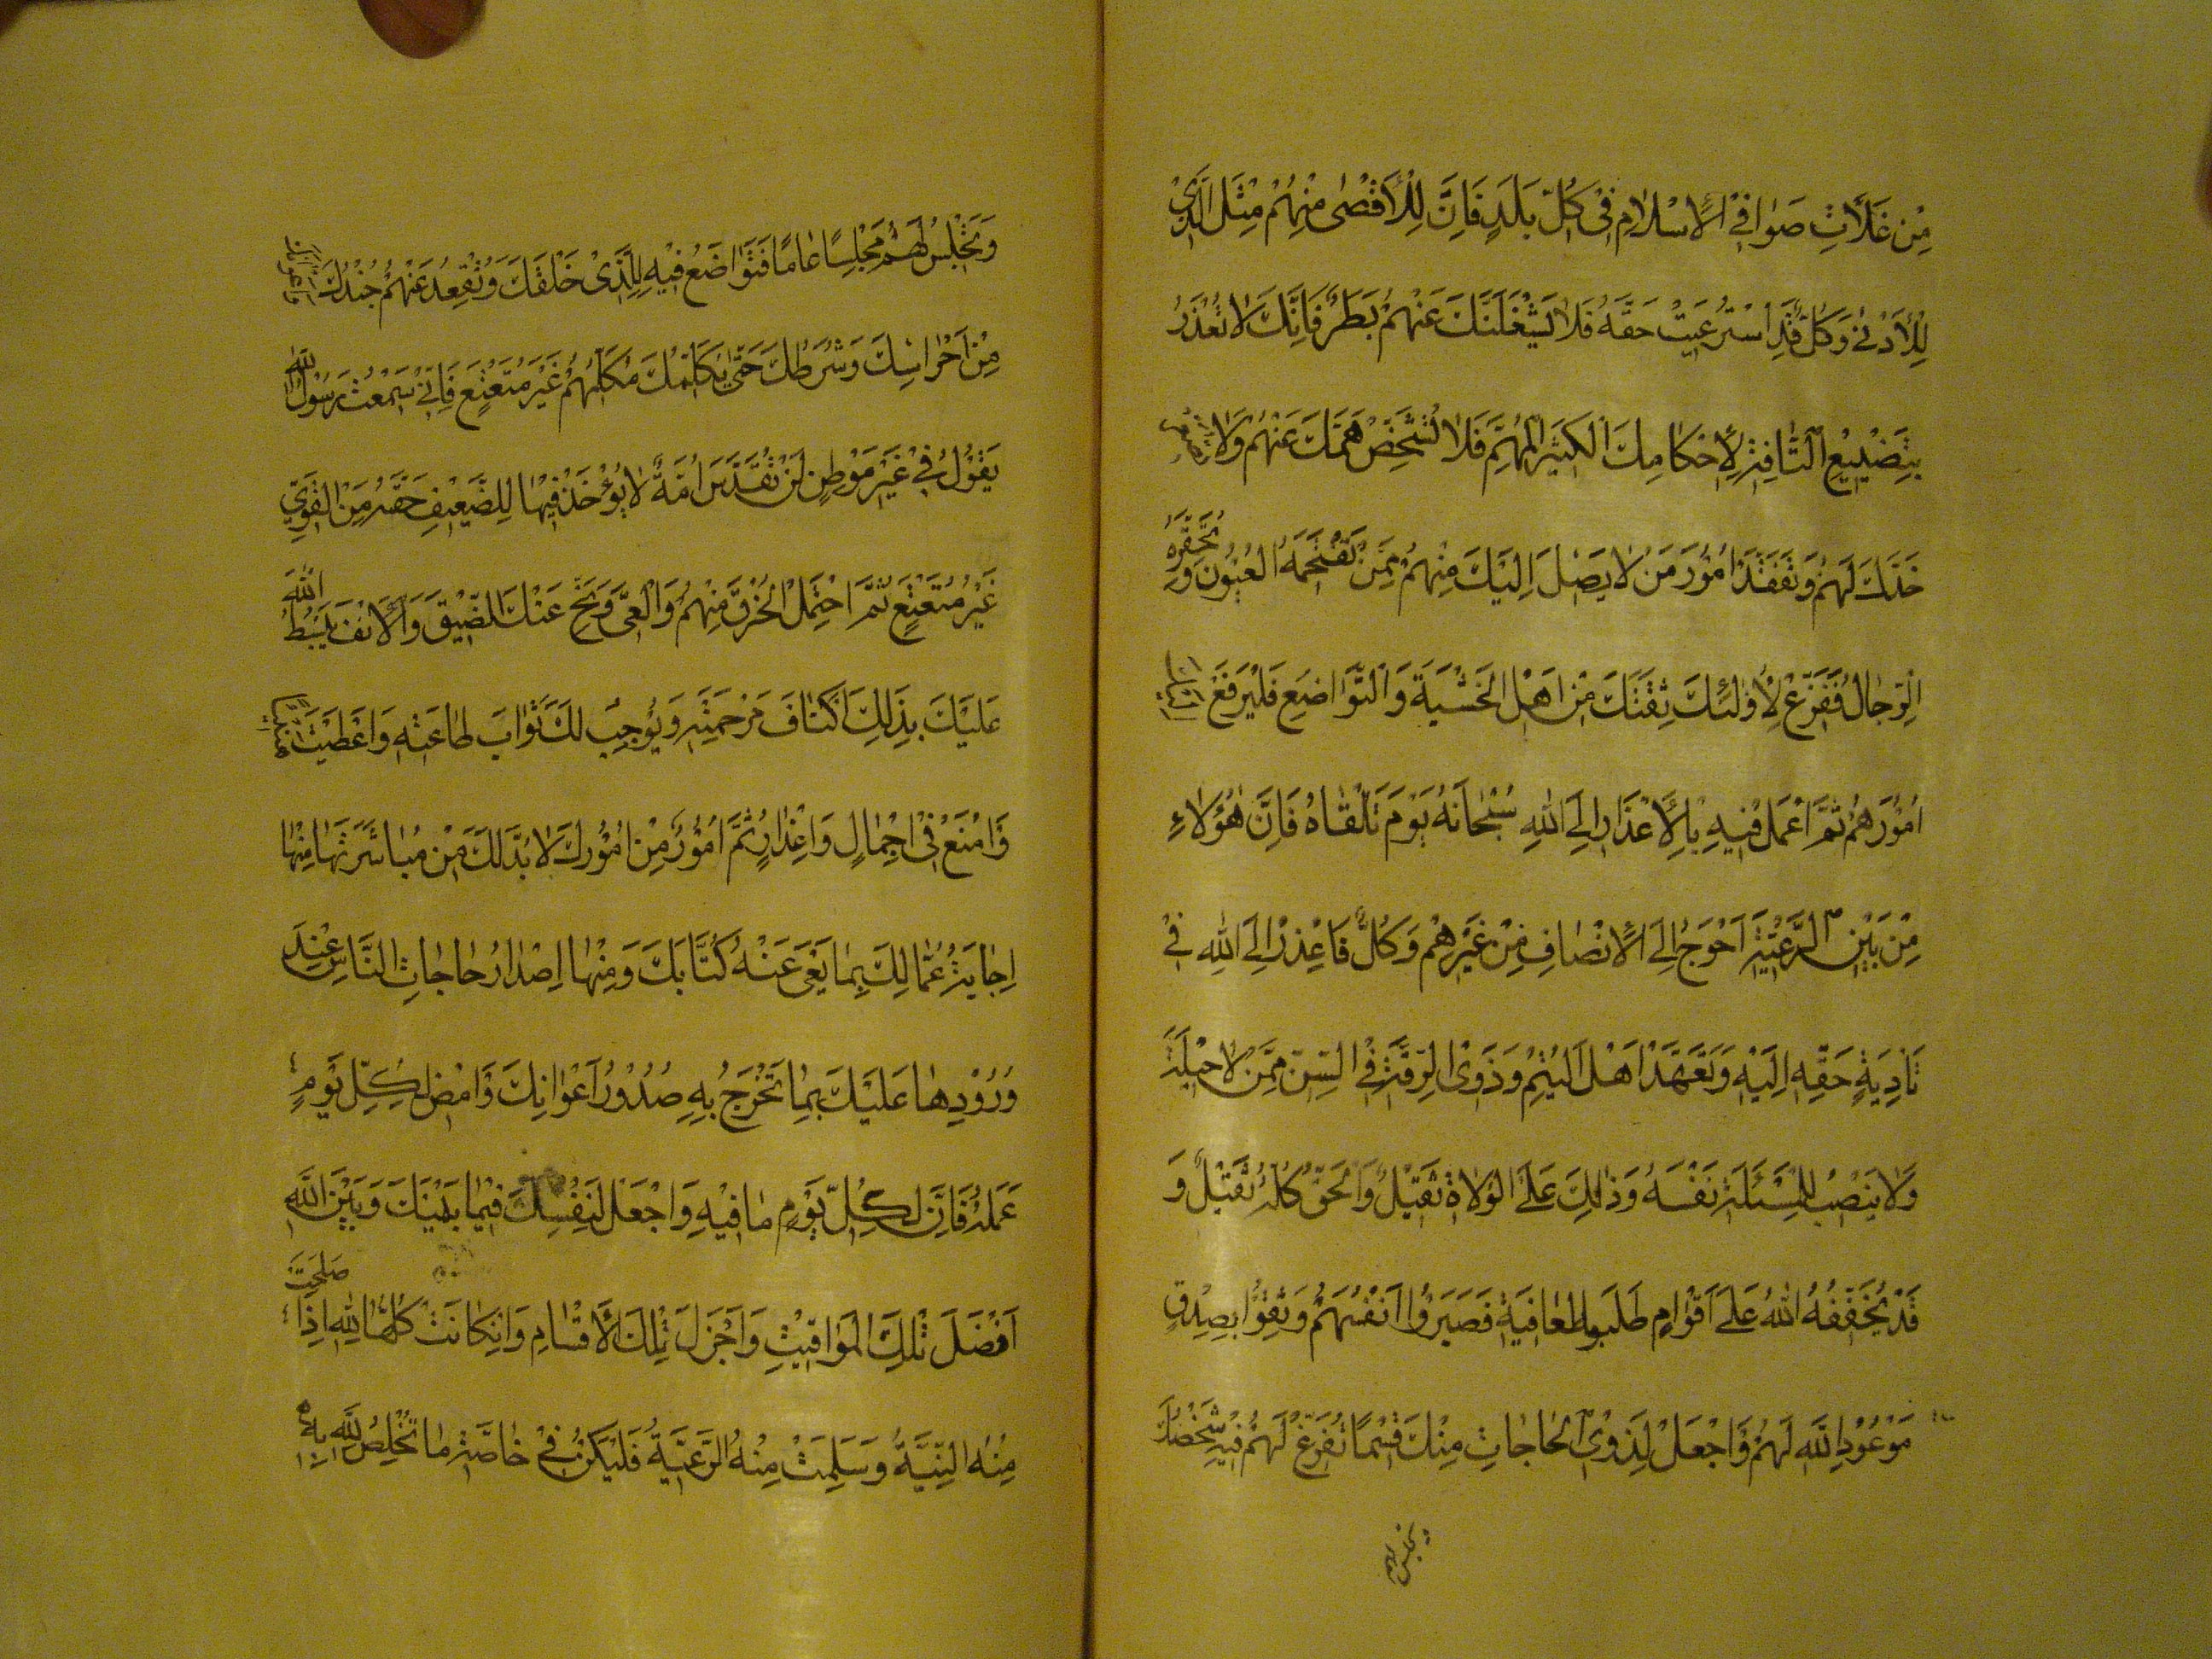 مِنْ غَلَّاتِ صَوٰافِى الْاِسْلٰامِ فِى كُلِّ بَلَدٍ فَاِنَّ لِلْاَقْصٰى مِنْهُمْ مِثْلَ الَّذِىْ
لِلْاَدْنٰى وَكُلٌّ قَدِ اسْتُرْعِيْتَ حَقَّهُ فَلٰا يَشْغَلَنَّكَ عَنْهُمْ بَطَرٌ فَاِنَّكَ لٰا تُعْذَرُ
بِتَضْيِيْعِ التّٰافِهِ لِاِحْكٰامِكَ الْكَثِيْرَ الْمُهِمَّ فَلٰا تُشْخِصْ هَمَّكَ عَنْهُمْ وَلٰا تُصَعِّرْ
خَدَّكَ لَهُمْ وَتَفَقَّدْ اُمُوْرَ مَنْ لٰا يَصِلُ اِلَيْكَ مِنْهُمْ مِمَّنْ تَقْتَحِمُهُ الْعُيُوْنُ وَ تُحَقِّرُهُ
الرِّجٰالُ فَفَرِّغْ لِاُولٰئِكَ ثِقَتَكَ مِنْ اَهْلِ الْخَشْيَةِ وَالتَّوٰاضُعِ فَلْيَرْفَعْ اِلَيْكَ
اُمُوْرَهُمْ ثُمَّ اعْمَلْ فِيْهِ بِالْاِعْذٰارِ اِلَى اللّٰهِ سُبْحٰانَهُ يَوْمَ تَلْقٰاهُ فَاِنَّ هٰؤُلٰاءِ
مِنْ بَيْنِ الرَّعِيَّةِ اَحْوَجُ اِلَى الْاِنْصٰافِ مِنْ غَيْرِهِمْ وَكُلٌّ فَاَعْذِرْ اِلَى اللّٰهِ فِى
تَاْدِيَةِ حَقِّهِ اِلَيْهِ وَتَعَهَّدْ اَهْلَ الْيُتْمِ وَذَوِى الرِّقَّةِ فِى السِّنِّ مِمَّنْ لٰا حِيْلَةَ
وَلٰا يَنْصِبُ لِلْمَسْئَلَةِ نَفْسَهُ وَذٰلِكَ عَلَى الْوُلٰاةِ ثَقِيْلٌ وَالْحَقُّ كُلُّهُ ثَقِيْلٌ وَ
قَدْ يُخَفِّفُهُ اللّٰهُ عَلٰى اَقْوٰامٍ طَلَبُوا الْعٰافِيَةَ فَصَبَّرُوا اَنْفُسَهُمْ وَوَثِقُوْا بِصِدْقِ
مَوْعُوْدِ اللّٰهِ لَهُمْ وَاجْعَلْ لِذَوِى الْحٰاجٰاتِ مِنْكَ قِسْمًا تُفَرِّغُ لَهُمْ فِيْهِ شَخْصَكَ
وَتَجْلِسُ لَهُمْ مَجْلِسًا عٰامًّا فَتَتَوٰاضَعُ فِيْهِ لِلَّذِىْ خَلَقَكَ وَتُقْعِدُ عَنْهُمْ جُنْدَكَ وَاَعْوٰانَكَ
مِنْ اَحْرٰاسِكَ وَشُرَطِكَ حَتّٰى يُكَلِّمَكَ مُكَلِّمُهُمْ غَيْرَ مُتَعْتِعٍ فَاِنِّى سَمِعْتُ رَسُوْلَ اللّٰهِ
يَقُوْلُ فِى غَيْرِ مَوْطِنٍ لَنْ تُقَدَّسَ اُمَّةٌ لٰا يُؤْخَذُ فِيْهٰا لِلضَّعِيْفِ حَقُّهُ مِنَ الْقَوِىِّ
غَيْرَ مُتَعْتِعٍ ثُمَّ احْتَمِلِ الْخُرْقَ مِنْهُمْ وَالْعِىَّ وَنَحِّ عَنْكَ الضِّيْقَ وَالْاَنَفَ يَبْسُطِ اللّٰهُ
عَلَيْكَ بِذٰلِكَ اَكْنٰافَ رَحْمَتِهِ وَيُوْجِبْ لَكَ ثَوٰابَ طٰاعَتِهِ وَاَعْطِ
وَامْنَعْ فِى اِجْمٰالٍ وَاِعْذٰارٍ ثُمَّ اُمُوْرٌ مِنْ اُمُوْرِكَ لٰا بُدَّ لَكَ مِنْ مُبٰاشَرَتِهٰا مِنْهٰا
اِجٰابَةُ عُمّٰالِكَ بِمٰا يَعْيٰى عَنْهُ كُتّٰابُكَ وَمِنْهٰا اِصْدٰارُ حٰاجٰاتِ النّٰاسِ عِنْدَ
وُرُوْدِهٰا عَلَيْكَ بِمٰا تَحْرَجُ بِهِ صُدُوْرُ اَعْوٰانِكَ وَاَمْضِ لِكُلِّ يَوْمٍ
عَمَلَهُ فَاِنَّ لِكُلِّ يَوْمٍ مٰا فِيْهِ وَاجْعَلْ لِنَفْسِكَ فِيْمٰا بَيْنَكَ وَبَيْنَ اللّٰهِ
اَفْضَلَ تِلْكَ الْمَوٰاقِيْتِ وَاَجْزَلَ تِلْكَ الْاَقْسٰامِ وَاِنْ كٰانَتْ كُلُّهٰا لِلّٰهِ اِذٰا صَلَحَتْ
مِنْهٰا النِّيَّةُ وَسَلِمَتْ مِنْهٰا الرَّعِيَّةُ فَلْيَكُنْ فِى خٰاصَّةِ مٰا تُخْلِصُ لِلّٰهِ بِهِ